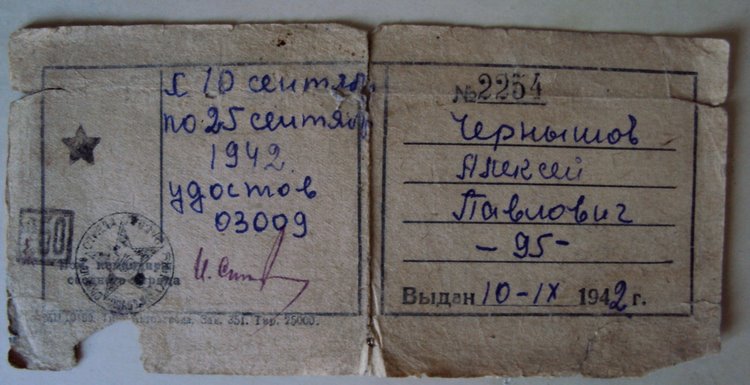 с 10 сентября
по 25 сентября
1942
удостов
03009
командира
Зак. 351. Тир. 75000.
№2254
Чернышов
Алексей
Павлович
- 95 -
Выдан 10-IX 1942 г.